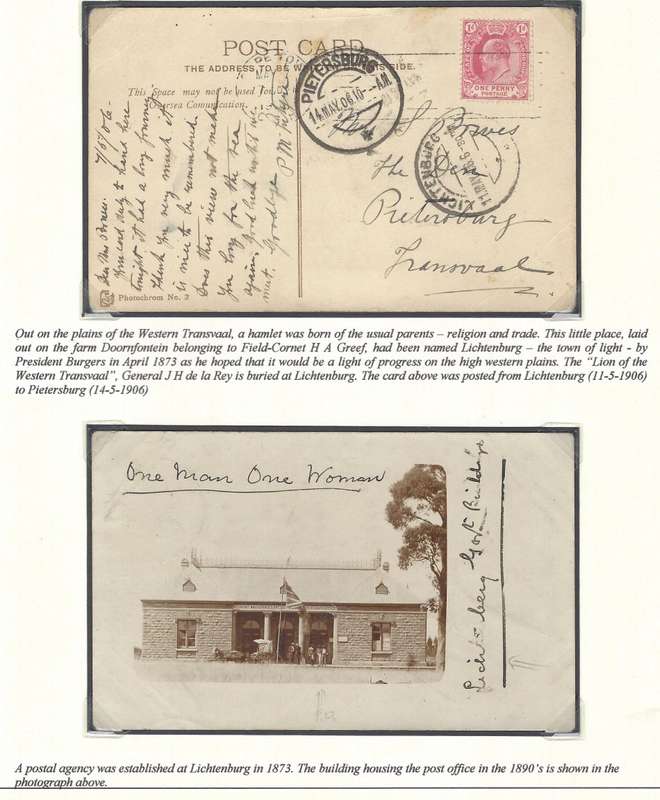 POST CARD.
THE ADDRESS TO BE WRITTEN ON THIS SIDE.
This Space may not be used for
Oversea Comunication.
ONE PENNY
POSTAGE
1d 1d
PIETERSBURG
14.MAY.06.10 - AM.
LICHTENBURG
11.MAY.06
The Den
Pietersburg
Transvaal
Your card duly to hand here
tonight it had a long journey
Thank you very much it
is nice to be remembered.
Does this view not make
you long for the sea
again. Good luck until we
meet. Goodbye
Photochrom No. 2
Out on the plains of the Western Transvaal, a hamlet was born of the usual parents – religion and trade. This little place, laid
out on the farm Doornfontein belonging to Field-Cornet H A Greef, had been named Lichtenburg – the town of light - by
President Burgers in April 1873 as he hoped that it would be a light of progress on the high western plains. The "Lion of the
Western Transvaal", General J H de la Rey is buried at Lichtenburg. The card above was posted from Lichtenburg (11-5-1906)
to Pietersburg (14-5-1906)
One Man One Woman
Licht-berg Govt Buildings
A postal agency was established at Lichtenburg in 1873. The building housing the post office in the 1890's is shown in the
photograph above.